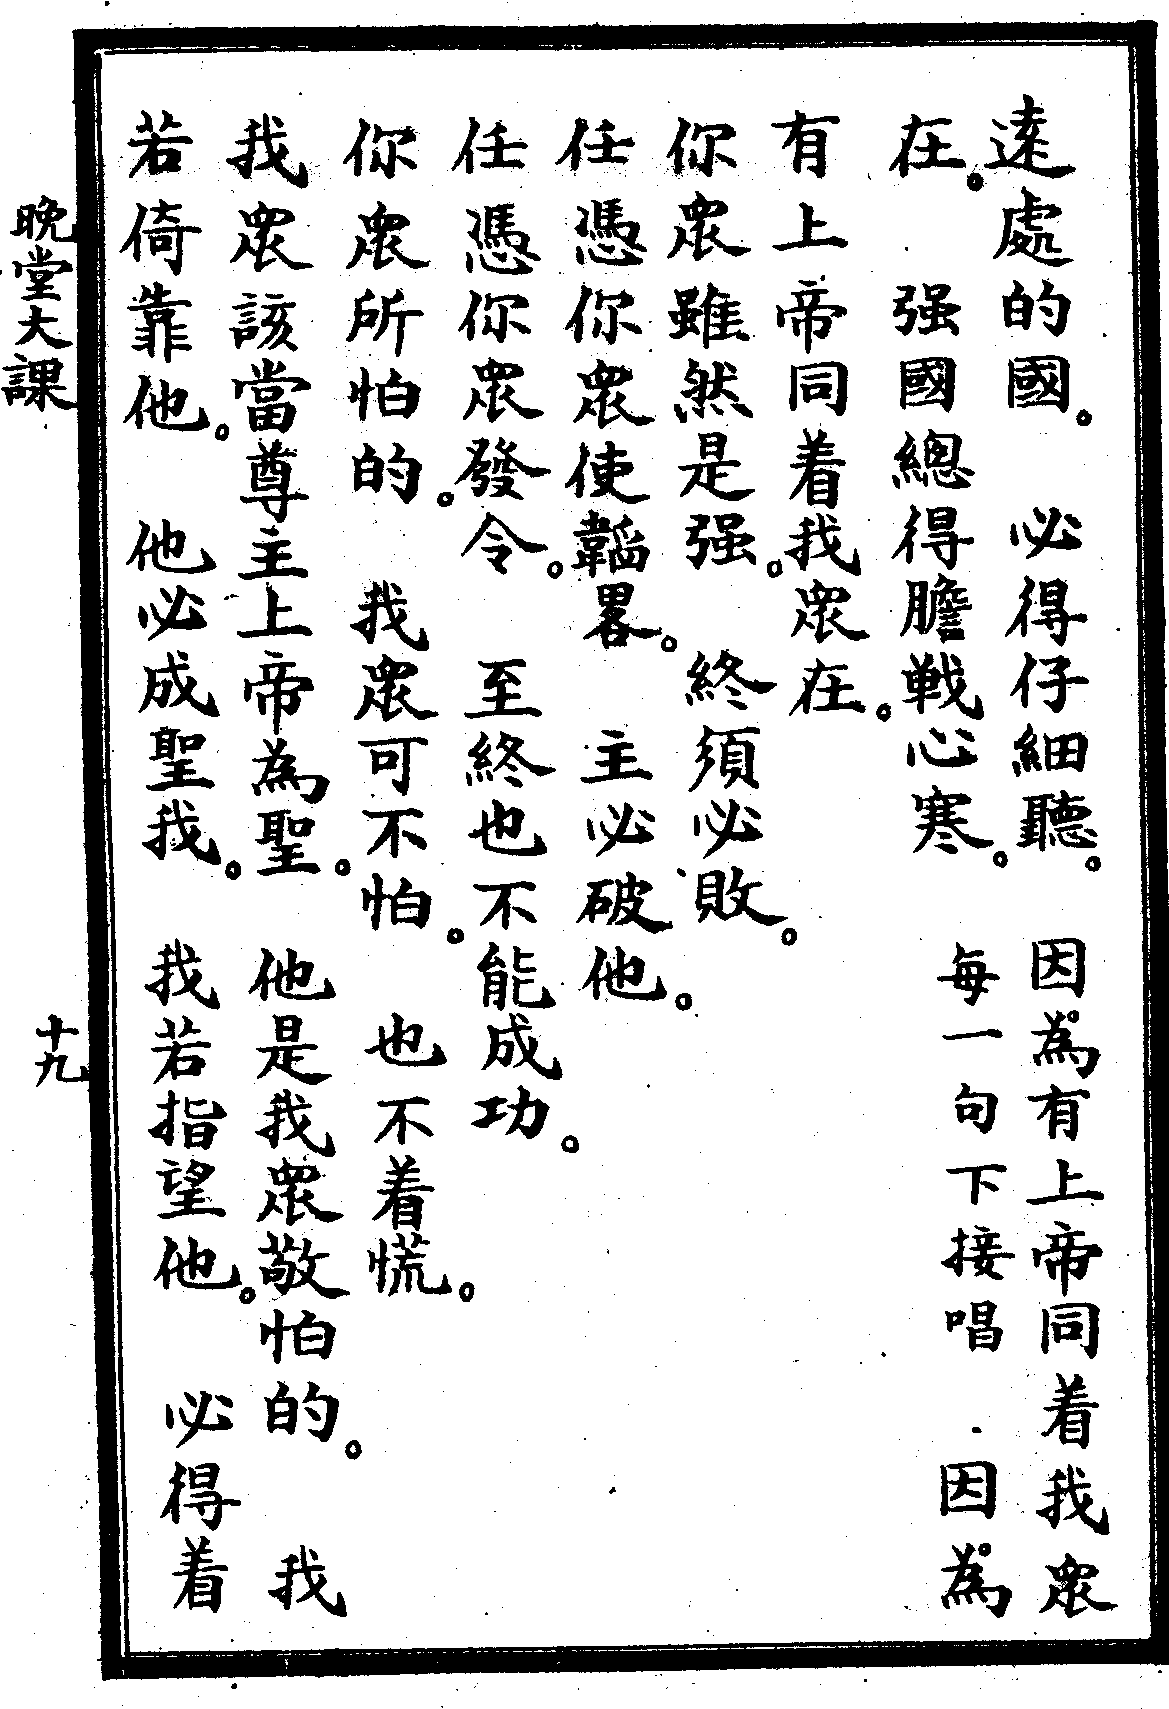 遠處的國。　必得仔細聽。　因為有上帝同着我衆
在。　强國總得膽戰心寒。　每一句下接唱　因為
有上帝同着我衆在。
你衆雖然是强。　終須必敗。
任憑你衆使韜畧。　主必破他。
任憑你衆發令。　至終也不能成功。
你衆所怕的。　我衆可不怕。　也不着慌。
我衆該當尊主上帝為聖。　他是我衆敬怕的。　我
若倚靠他。　他必成聖我。　我若指望他。　必得着
晚堂大課
十九